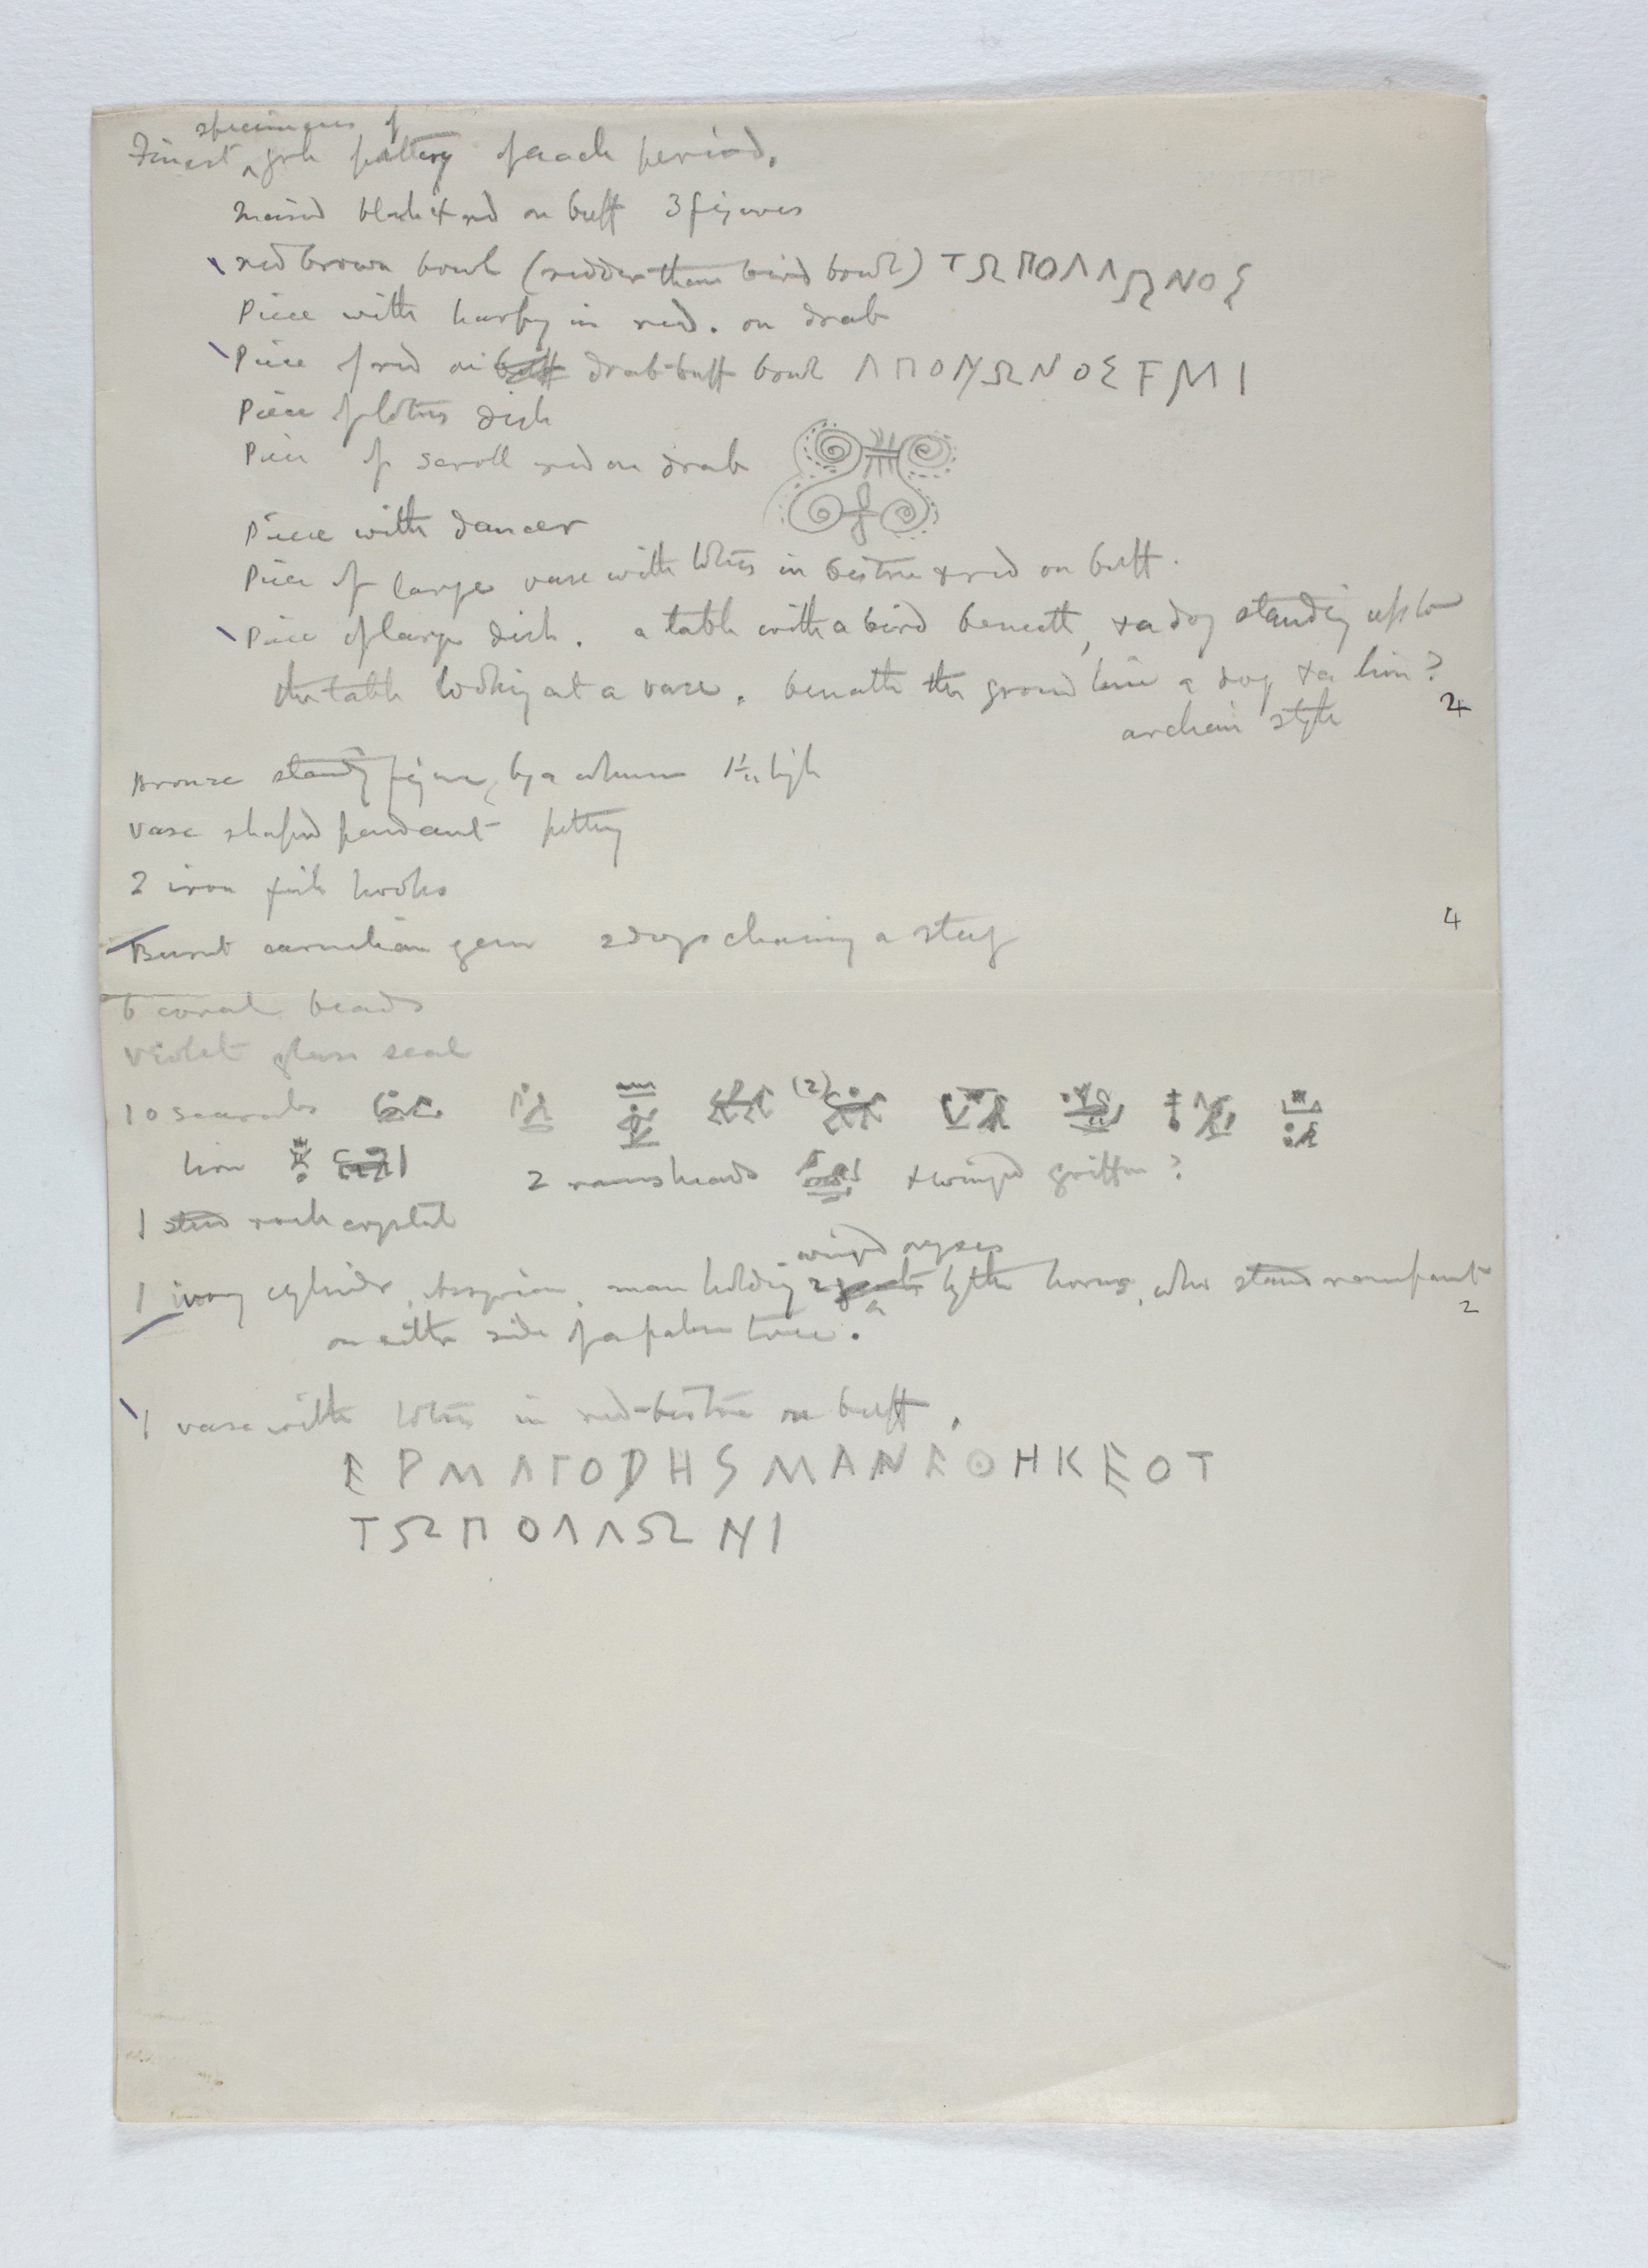 specimens of
Finest ^ grk pottery of each period.
Incised black & red on buff 3 figures
red brown bowl (redder than bird bowl) ΤΩΠΟΛΛΩΝΟΣ
Piece with harpy in red. on drab
Piece of red on buff drab-buff bowl ΛΠΟΛΛΩΝΟΣ ΕΜΙ
Piece of lotus dish
Piece of scroll red on drab
Piece with dancer
Piece of large vase with lotus in bistre & red on buff.
Piece of large dish. a table with a bird beneath, & a dog standing up to
the table looking at a vase. beneath the ground line a dog & a lion?
archaic style
2
Bronze standg figure, by a column 1½" high
vase shaped pendant pottery
2 iron fish hooks
4
Burnt carnelian gem 2 dogs chasing a stag
6 coral beads
violet glass seal
10 scarabs (2)
lion 2 rams heads & winged griffin?
1 stud rock crystal
winged oryxes
1 ivory cylinder, Assyrian, man holding 2 goats ^ by the horns, who stand rampant
2
on either side of a palm tree.
1 vase with lotus in red-bistre on buff.
ΕΡΜΑΓΟΡΗSΜΑΝΕΘΗΚΕΟΤ
ΤΩΠΟΛΛΩΝΙ